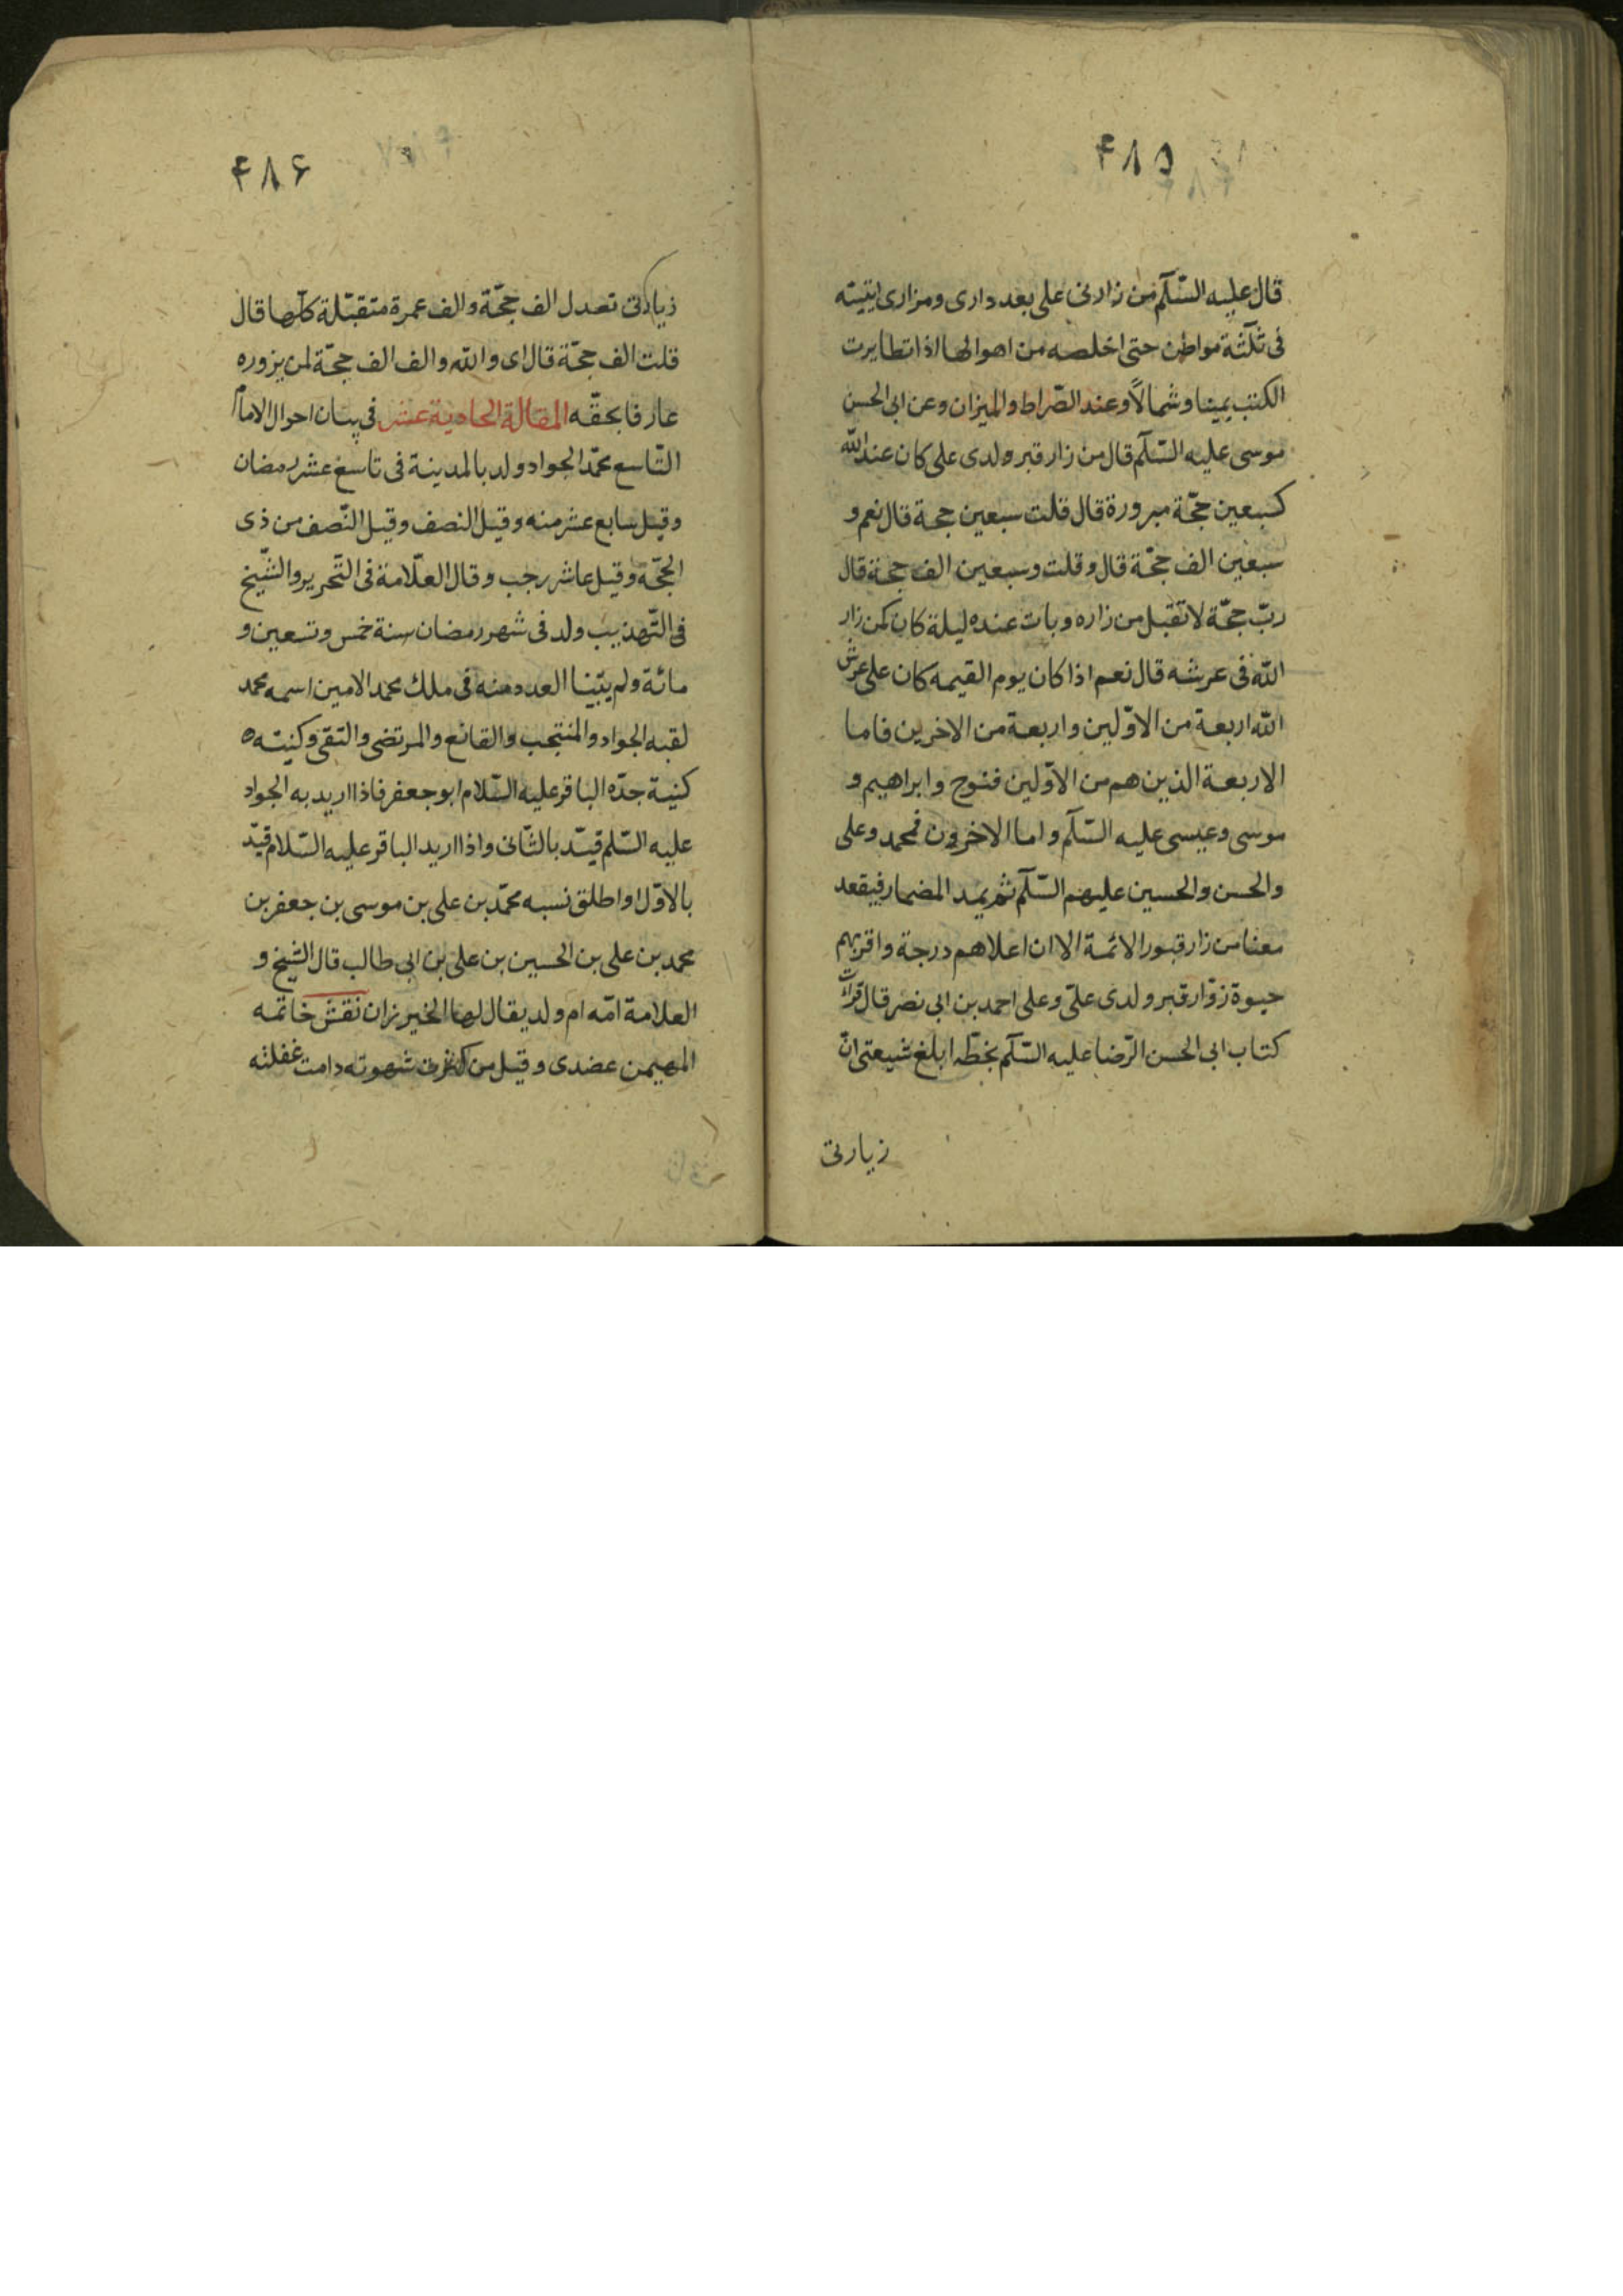 ۴۸۵
قال عليه السّلم من زارنى على بعد دارى ومزارى اتيته
فى ثلثة مواطن حتى اخلصه من اهوالها اذا تطايرت
الكتب يمينا وشمالاً وعند الصّراط والميزان وعن ابى الحسن
موسى عليه السّلم قال من زار قبر ولدى على كان عند الله
كسبعين حجّة مبرورة قال قلت سبعين حجة قال نعم و
سبعين الف حجّة قال وقلت وسبعين الف حجة قال
ربّ حجّة لا تقبل من زاره وبات عنده ليلة كان كمن زار
الله فى عرشه قال نعم اذا كان يوم القيمه كان على عرش
الله اربعة من الاوّلين واربعة من الاخرين فاما
الاربعة الذين هم من الاوّلين فنوح وابراهيم و
موسى وعيسى عليه السّلم واما الاخرون فمحمد وعلى
والحسن والحسين عليهم السّلم ثم يمد المضمار فيقعد
معنا من زار قبور الائمة الا ان اعلاهم درجة واقربهم
حبوة زوّار قبر ولدى علىّ وعلى احمد بن ابى نصر قال قرأت
كتاب ابى الحسن الرّضا عليه السّلم بخطّه ابلغ شيعتى انّ
زيارتى
۴۸۶
زيارتى تعدل الف حجّة والف عمرة متقبّلة كلّها قال
قلت الف حجّة قال اى والله والف الف حجّة لمن يزوره
عارفا بحقّه المقالة الحادية عشر فى بيان احوال الامام
التّاسع محمّد الجواد ولد بالمدينة فى تاسع عشر رمضان
وقيل سابع عشر منه وقيل النصف وقيل النّصف من ذى
الحجّة وقيل عاشر رجب وقال العلّامة فى التّحرير والشّيخ
فى التّهذيب ولد فى شهر رمضان سنة خمس وتسعين و
مائة ولم يبّينا العدد منه فى ملك محمد الامين اسمه محمد
لقبه الجواد والمنتجب والقانع والمرتضى والتقى وكنيته
كنية جدّه الباقر عليه السّلام ابو جعفر فاذا اريد به الجواد
عليه السّلم قيّد بالثّانى واذا اريد الباقر عليه السّلام قيّد
بالاوّل او اطلق نسبه محمّد بن على بن موسى بن جعفر بن
محمد بن على بن الحسين بن على بن ابى طالب قال الشيخ و
العلامة امّه ام ولد يقال لها الخيزران نقش خاتمه
المهيمن عضدى وقيل من كثرت شهوته دامت غفلته